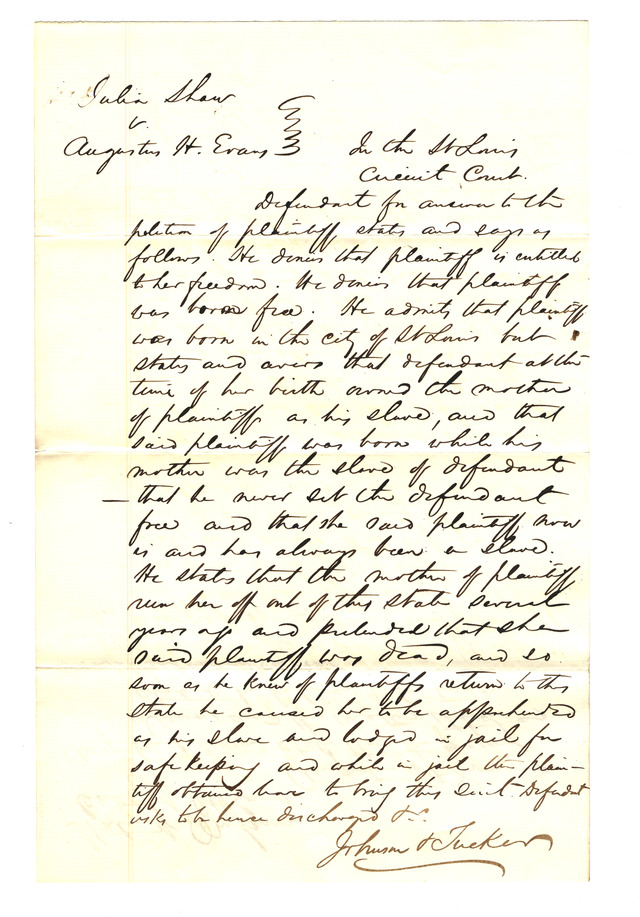 Julia Shaw
v.
Augustus H. Evans
In the St Louis
Circuit Court.
Defendant for answer to the
petition of plaintiff states and says as
follows. He denies that plaintiff is entitled
to her freedom. He denies that plaintiff
was born free. He admits that plaintiff
was born in the city of St Louis but
states and avers that defendant at the
time of her birth owned the mother
of plaintiff as his slave, and that
said plaintiff was born while his
mother was the slave of defendant
— that he never set the defendant
free and that she said plaintiff now
is and has always been a slave.
He states that the mother of plaintiff
run her off out of this state several
years ago and pretended that she
said plaintiff was dead, and so
soon as he knew of plaintiffs return to this
state he caused her to be apprehended
as his slave and lodged in jail for
safe keeping and while in jail the plain-
tiff obtained leave to bring this suit. Defendant
asks to be hence discharged &c.
Johnson & Tucker